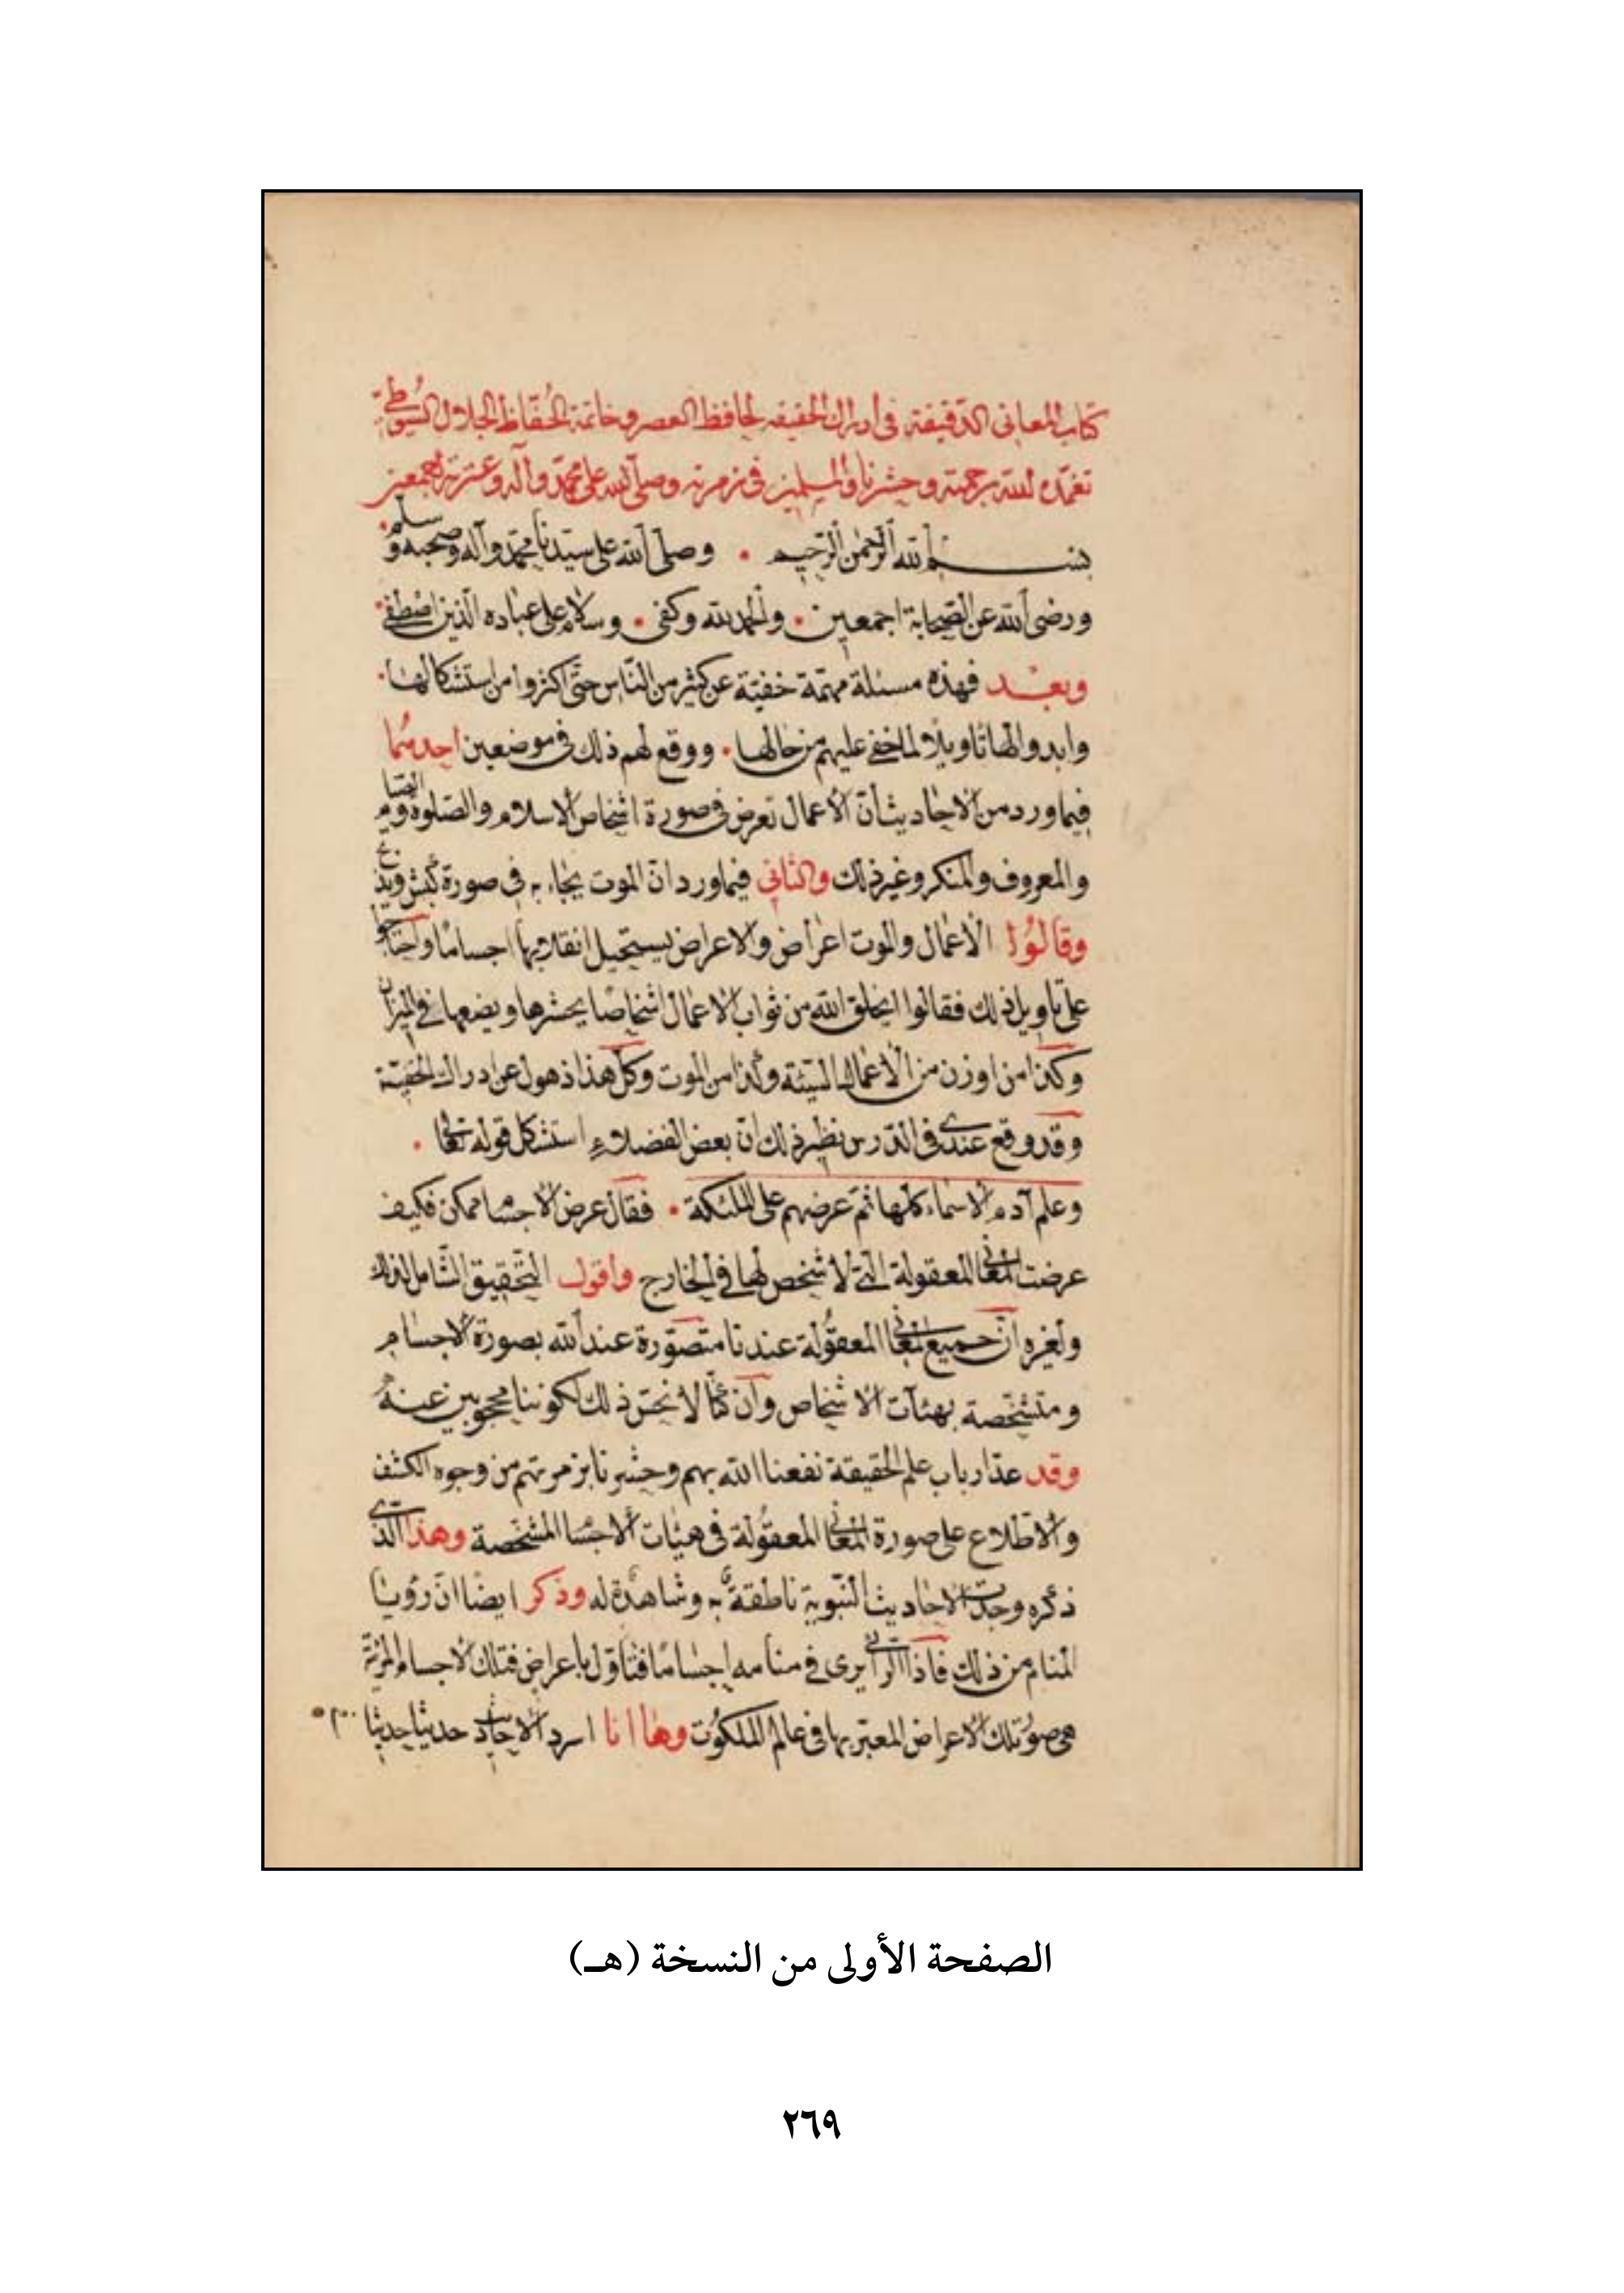 كتاب المعاني الدقيقة في ادراك الحقيقه لحافظ العصر وخاتمة الحفاظ الجلال السيوطي
تغمده الله برحمته وحشرنا والمسلمين في زمرته وصلى الله على محمد وآله وعترته اجمعين
بسم الله الرحمن الرحيم • وصلى الله على سيدنا محمد وآله وصحبه وسلم •
ورضى الله عن الصحابة اجمعين • والحمد لله وكفى • وسلام على عباده الذين اصطفى •
وبعد فهذه مسئلة مهمة خفية عن كثير من الناس حتى اكثروا من استشكالها •
وابدوا لها تاويلا لما خفى عليهم من حالها • ووقع لهم ذلك في موضعين احدهما
فيما ورد من الاحاديث أن الأعمال تعرض في صورة اشخاص الاسلام والصلوة والصيام
والمعروف والمنكر وغير ذلك والثاني فيما ورد ان الموت يجاء به في صورة كبش ويذبح
وقالوا الاعمال والموت اعراض والاعراض يستحيل انقلابها اجساما واحتاجوا
على تاويل ذلك فقالوا يخلق الله من ثواب الاعمال اشخاصا يحشرها ويضعها في الميزان
وكذا من اوزن من الاعمال السيئة وكذا من الموت وكل هذا ذهول عن ادراك الحقيقة
وقد وقع عندى في الدرس نظير ذلك ان بعض الفضلاء استشكل قوله تعالى •
وعلم آدم الاسماء كلها ثم عرضهم على الملئكة • فقال عرض الاجسام ممكن فكيف
عرضت المعاني المعقولة التي لا شخص لها في الخارج واقول التحقيق الشامل لذلك
ولغيره ان جميع المعاني المعقولة عندنا متصورة عند الله بصورة الاجسام
ومتشخصة بهئآت الاشخاص وان كنا لا نحس ذلك لكوننا محجوبين عنه
وقد عدّ ارباب علم الحقيقة نفعنا الله بهم وحشرنا بزمرتهم من وجوه الكشف
والاطلاع على صورة المعاني المعقولة في هيئات الاجسام المشخصة وهذا الذى
ذكره وجدت الاحاديث النبوية ناطقة به وشاهدة له وذكر ايضا ان رؤيا
المنام من ذلك فاذا الرائي يرى في منامه اجساما فتاول باعراض فتلك الاجسام المرئية
هي صور تلك الاعراض المعبر بها في عالم الملكوت وها انا اسرد الاحاديث حديثا حديثا
الصفحة الأولى من النسخة (هـ)
٢٦٩